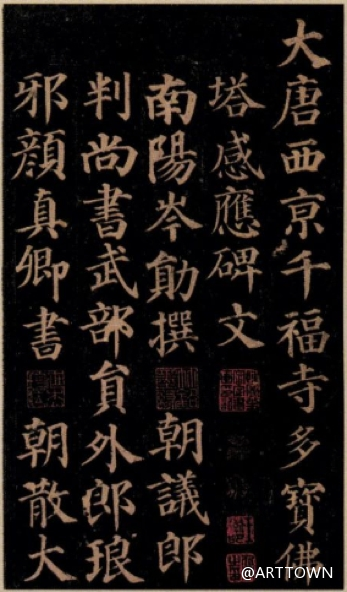 大唐西亰千福寺多寶佛
塔感應碑文
南陽岑勛撰 朝議郎
判尚書武部貟外郎琅
邪顏真卿書 朝散大
@ARTTOWN